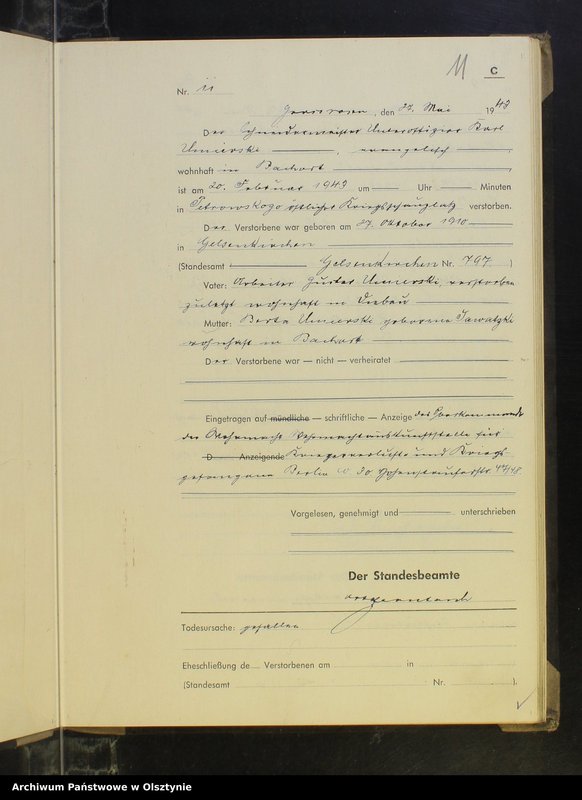 11 C
Nr. 11
, den 27. Mai 1943
Der Schneidermeister Unteroffizier Karl
Umierski, evangelisch
wohnhaft in Bachort
ist am 20. Februar 1943 um Uhr Minuten
in Petrowskogo östlicher Kriegsschauplatz verstorben.
Der Verstorbene war geboren am 27. Oktober 1910
in Gelsenkirchen
(Standesamt Gelsenkirchen Nr. 797)
Vater: Arbeiter Gustav Umierski, verstorben
zuletzt wohnhaft in
Mutter: Berta Umierski geborene
wohnhaft in Bachort
Der Verstorbene war — nicht — verheiratet
Eingetragen auf mündliche — schriftliche — Anzeige des Oberkommando
der Wehrmacht Wehrmachtauskunftstelle für
D Anzeigende Kriegerverluste und Kriegs
gefangene Berlin W 30 Hohenstaufenstr 47/48.
Vorgelesen, genehmigt und unterschrieben
Der Standesbeamte
Todesursache: gefallen
Eheschließung de Verstorbenen am in
(Standesamt Nr. ).
Archiwum Państwowe w Olsztynie